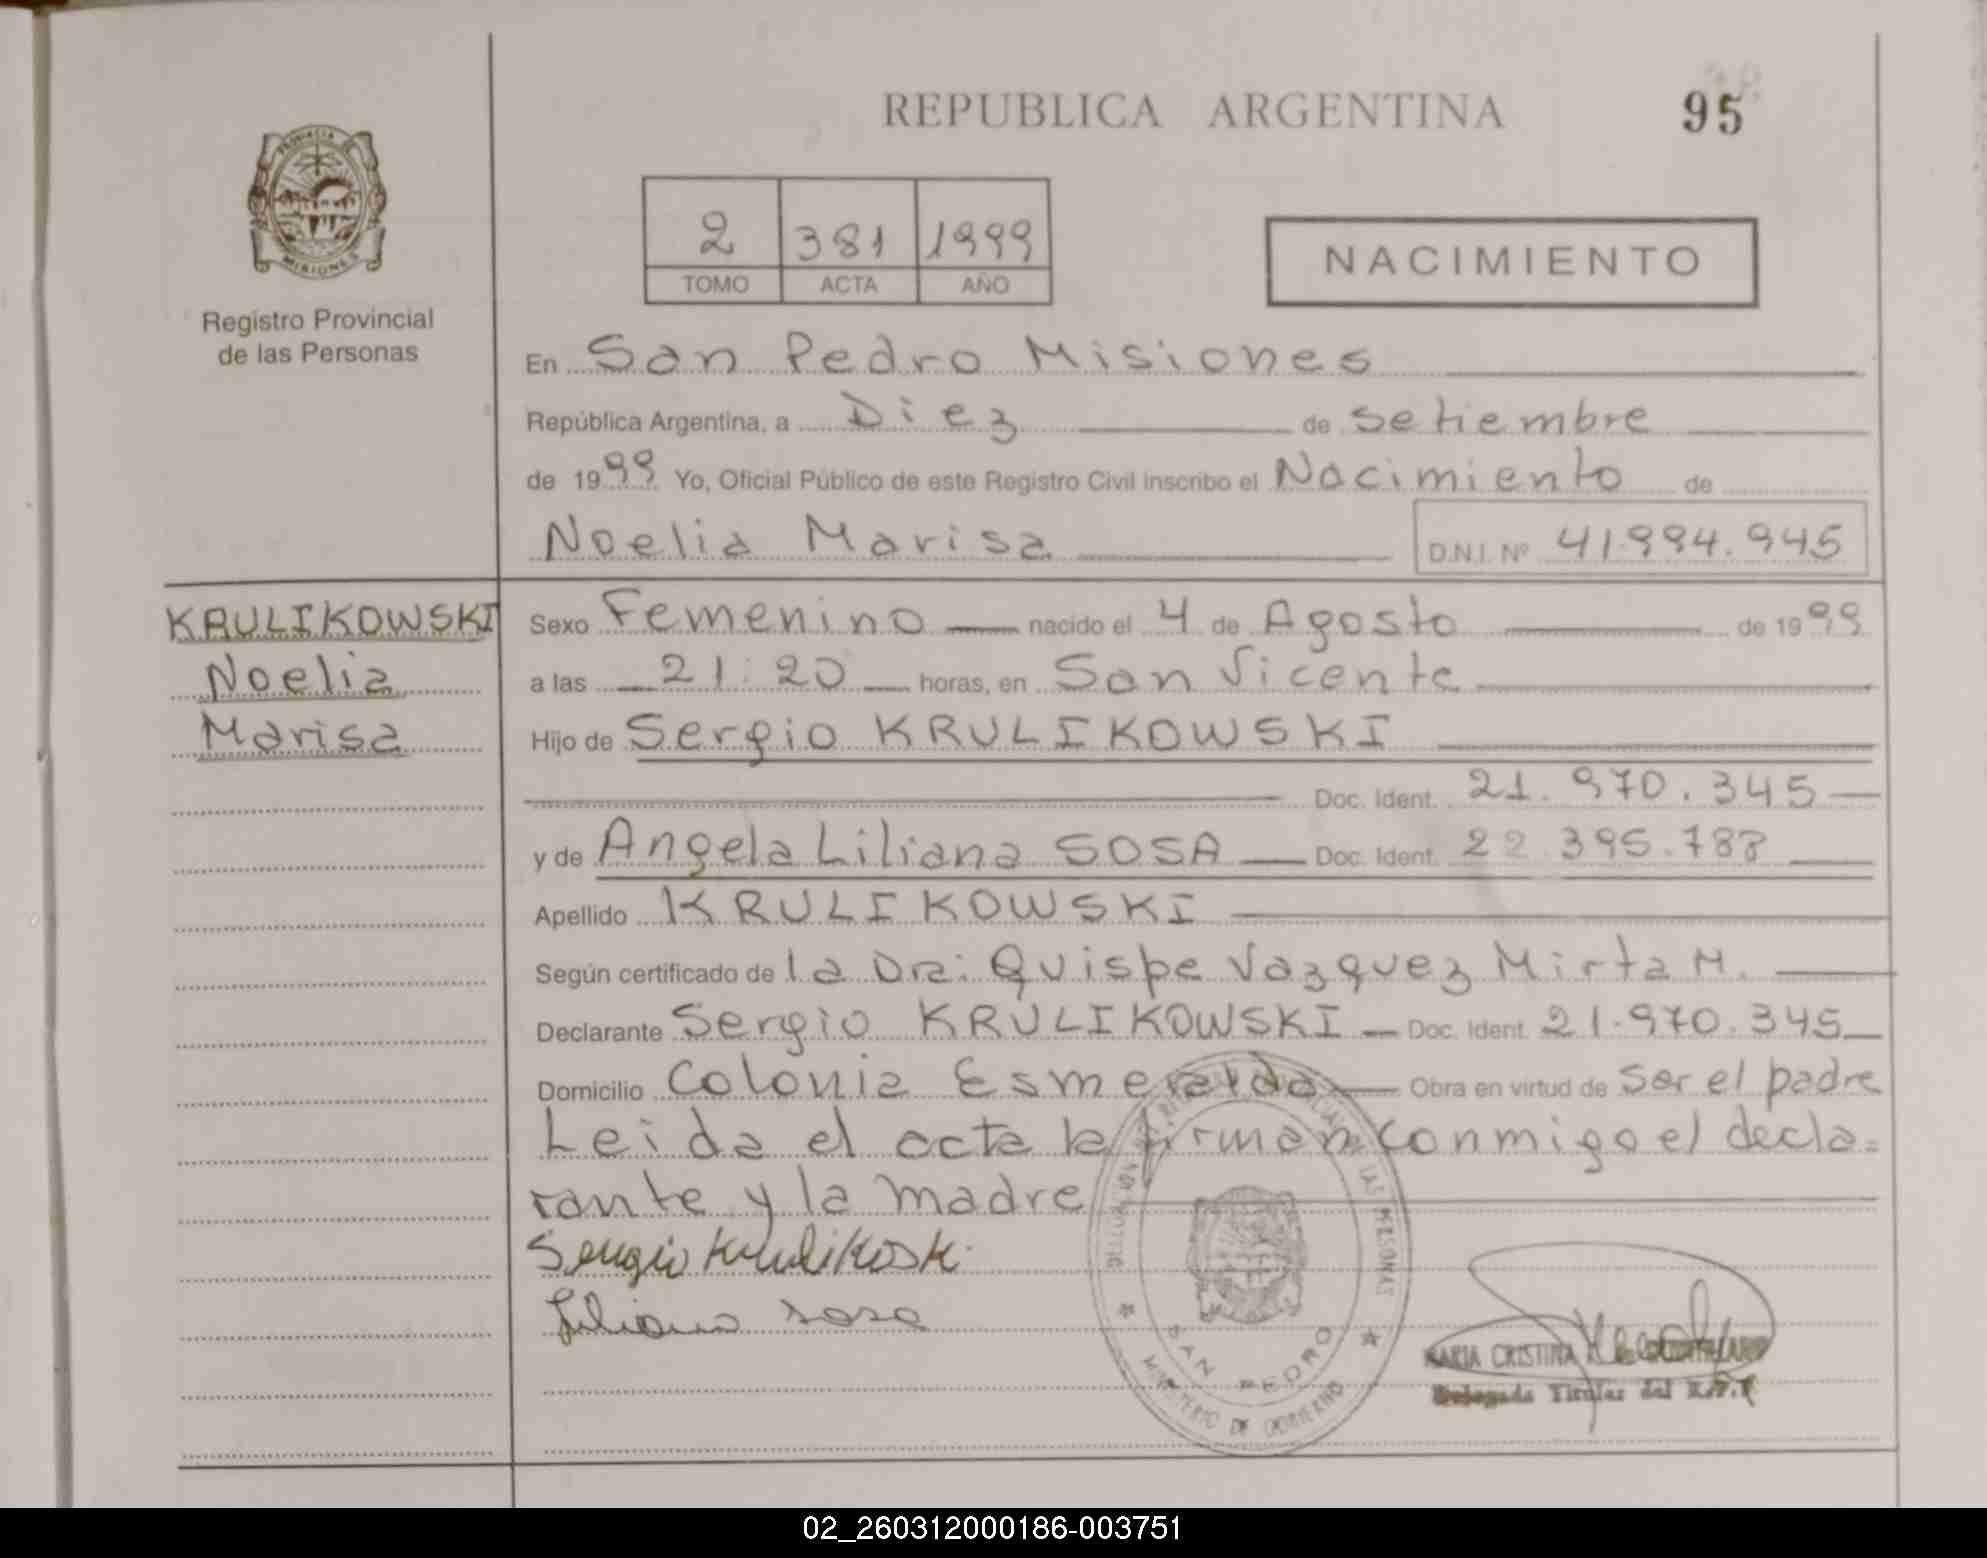 REPUBLICA ARGENTINA
95
PROVINCIA DE
MISIONES
Registro Provincial
de las Personas
2 381 1999
TOMO ACTA AÑO
NACIMIENTO
En San Pedro Misiones
República Argentina, a Diez de Setiembre
de 1999 Yo, Oficial Público de este Registro Civil inscribo el Nacimiento de
Noelia Marisa D.N.I. Nº 41.994.945
KRULIKOWSKI
Noelia
Marisa
Sexo Femenino nacido el 4 de Agosto de 1999
a las 21:20 horas, en San Vicente
Hijo de Sergio KRULIKOWSKI
Doc. Ident. 21.970.345
y de Angela Liliana SOSA Doc. Ident. 22.395.788
Apellido KRULIKOWSKI
Según certificado de la Dra: Quispe Vazquez Mirta M.
Declarante Sergio KRULIKOWSKI Doc. Ident. 21.970.345
Domicilio Colonia Esmeralda Obra en virtud de Ser el padre
Leida el acta la firman conmigo el decla=
rante y la madre
Sergio Krulikoski
Liliana Sosa
DE LAS PERSONAS
SAN PEDRO
MINISTERIO DE GOBIERNO
MARIA CRISTINA
Delegada Titular del R.P.P
02_260312000186-003751